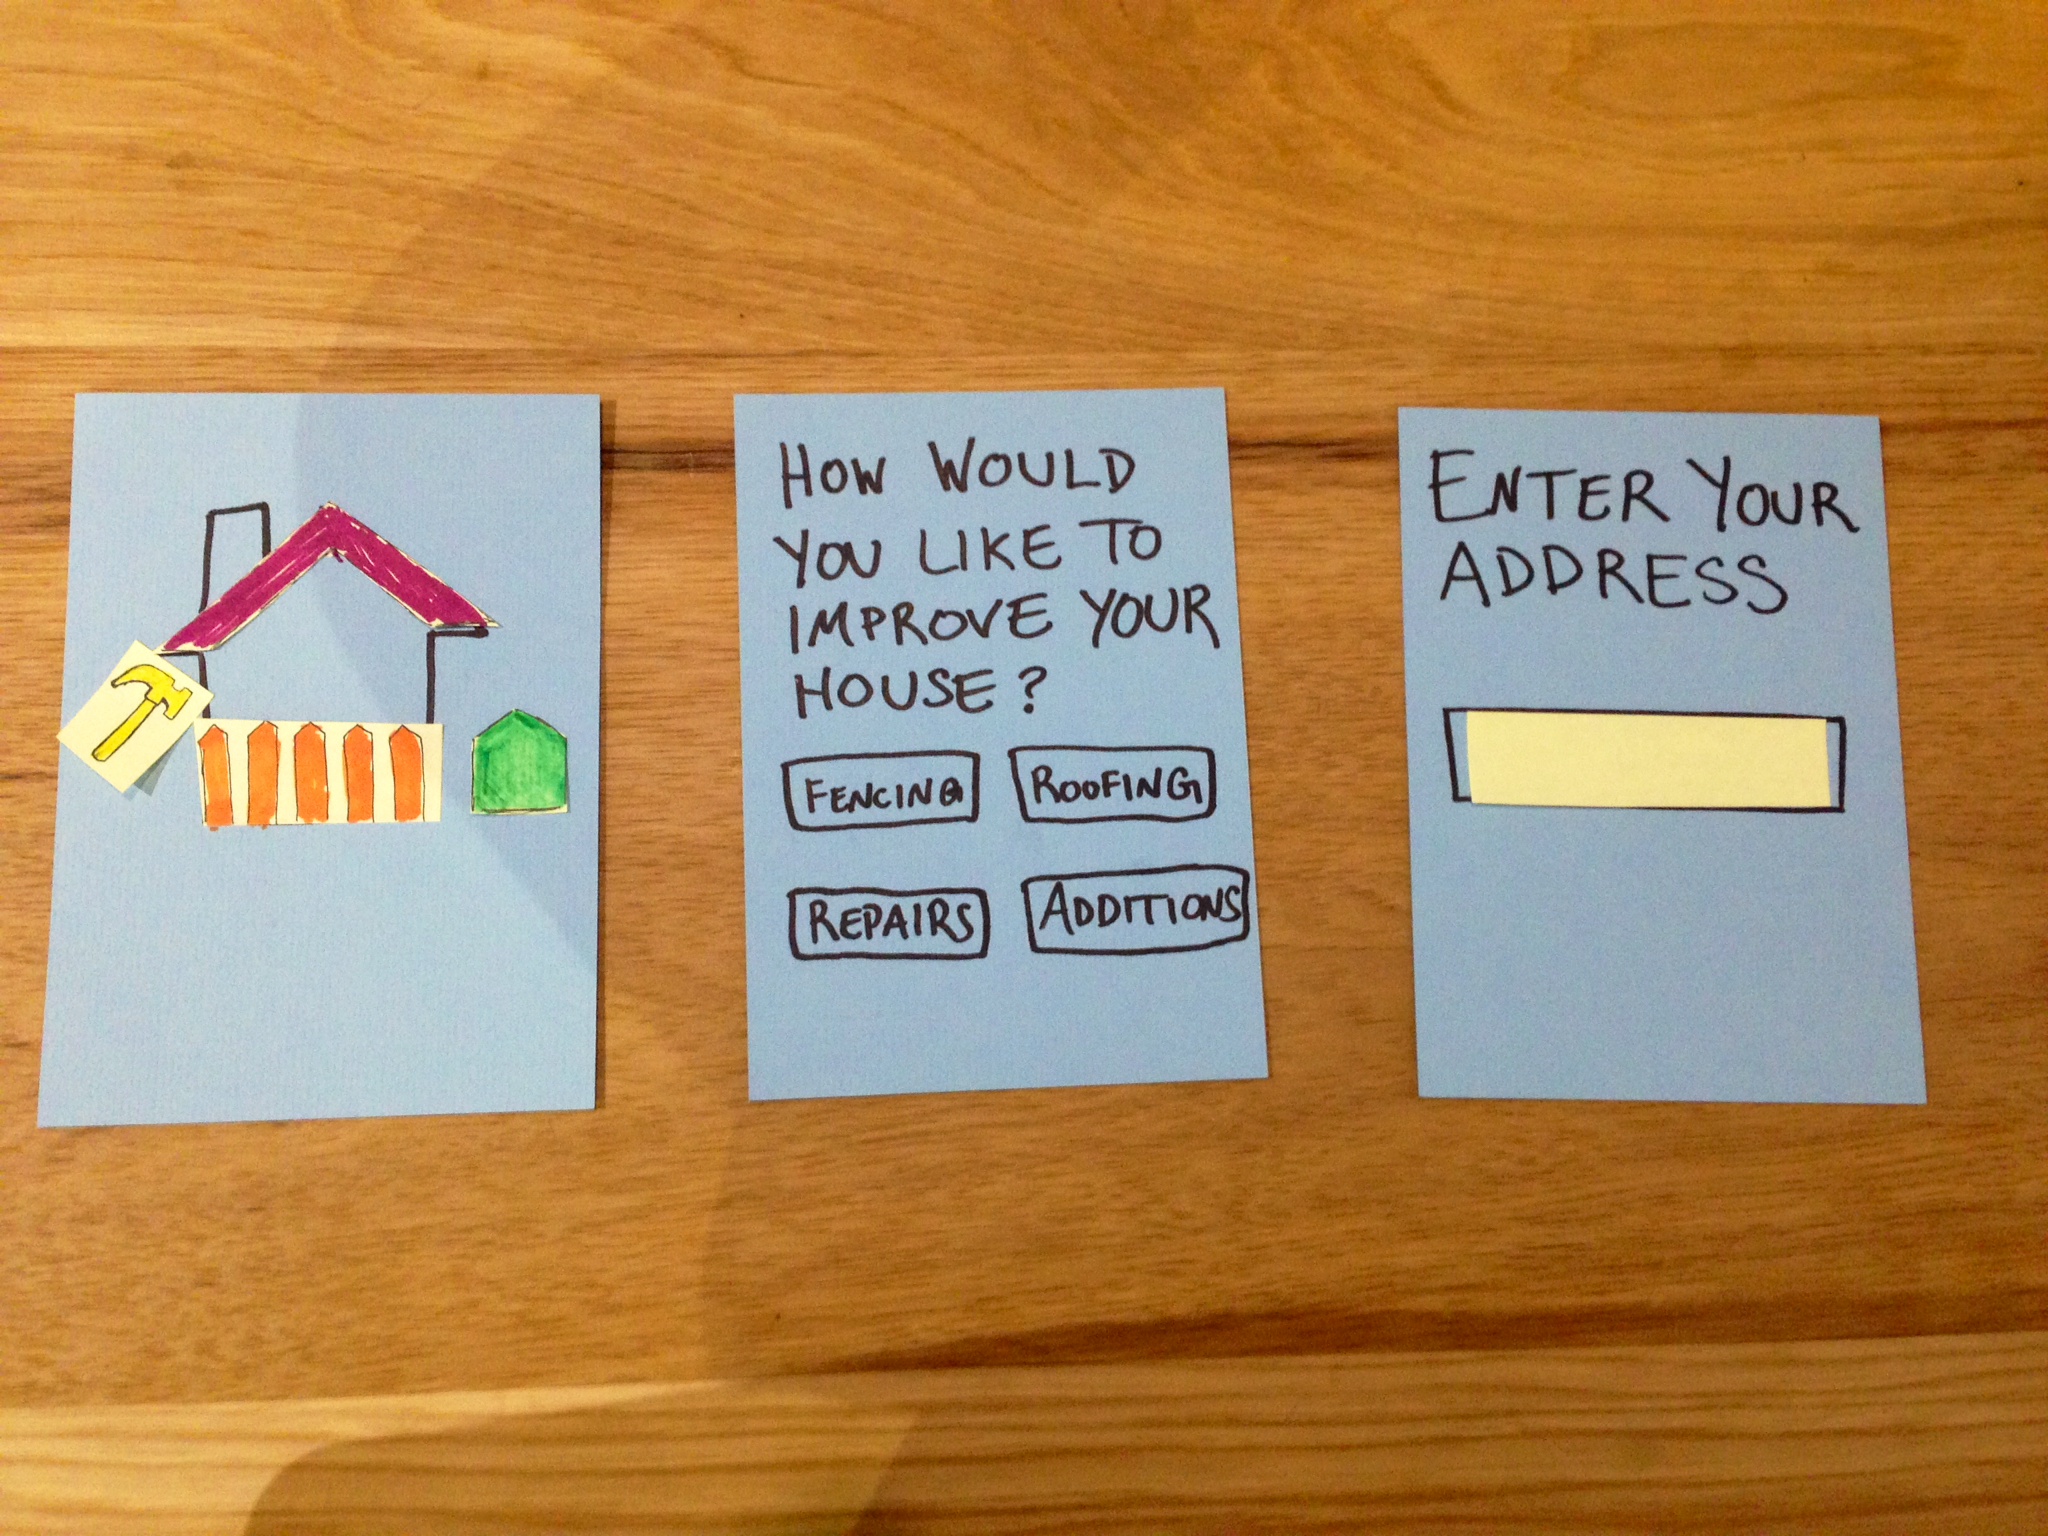 HOW WOULD
YOU LIKE TO
IMPROVE YOUR
HOUSE?
FENCING
ROOFING
REPAIRS
ADDITIONS
ENTER YOUR
ADDRESS